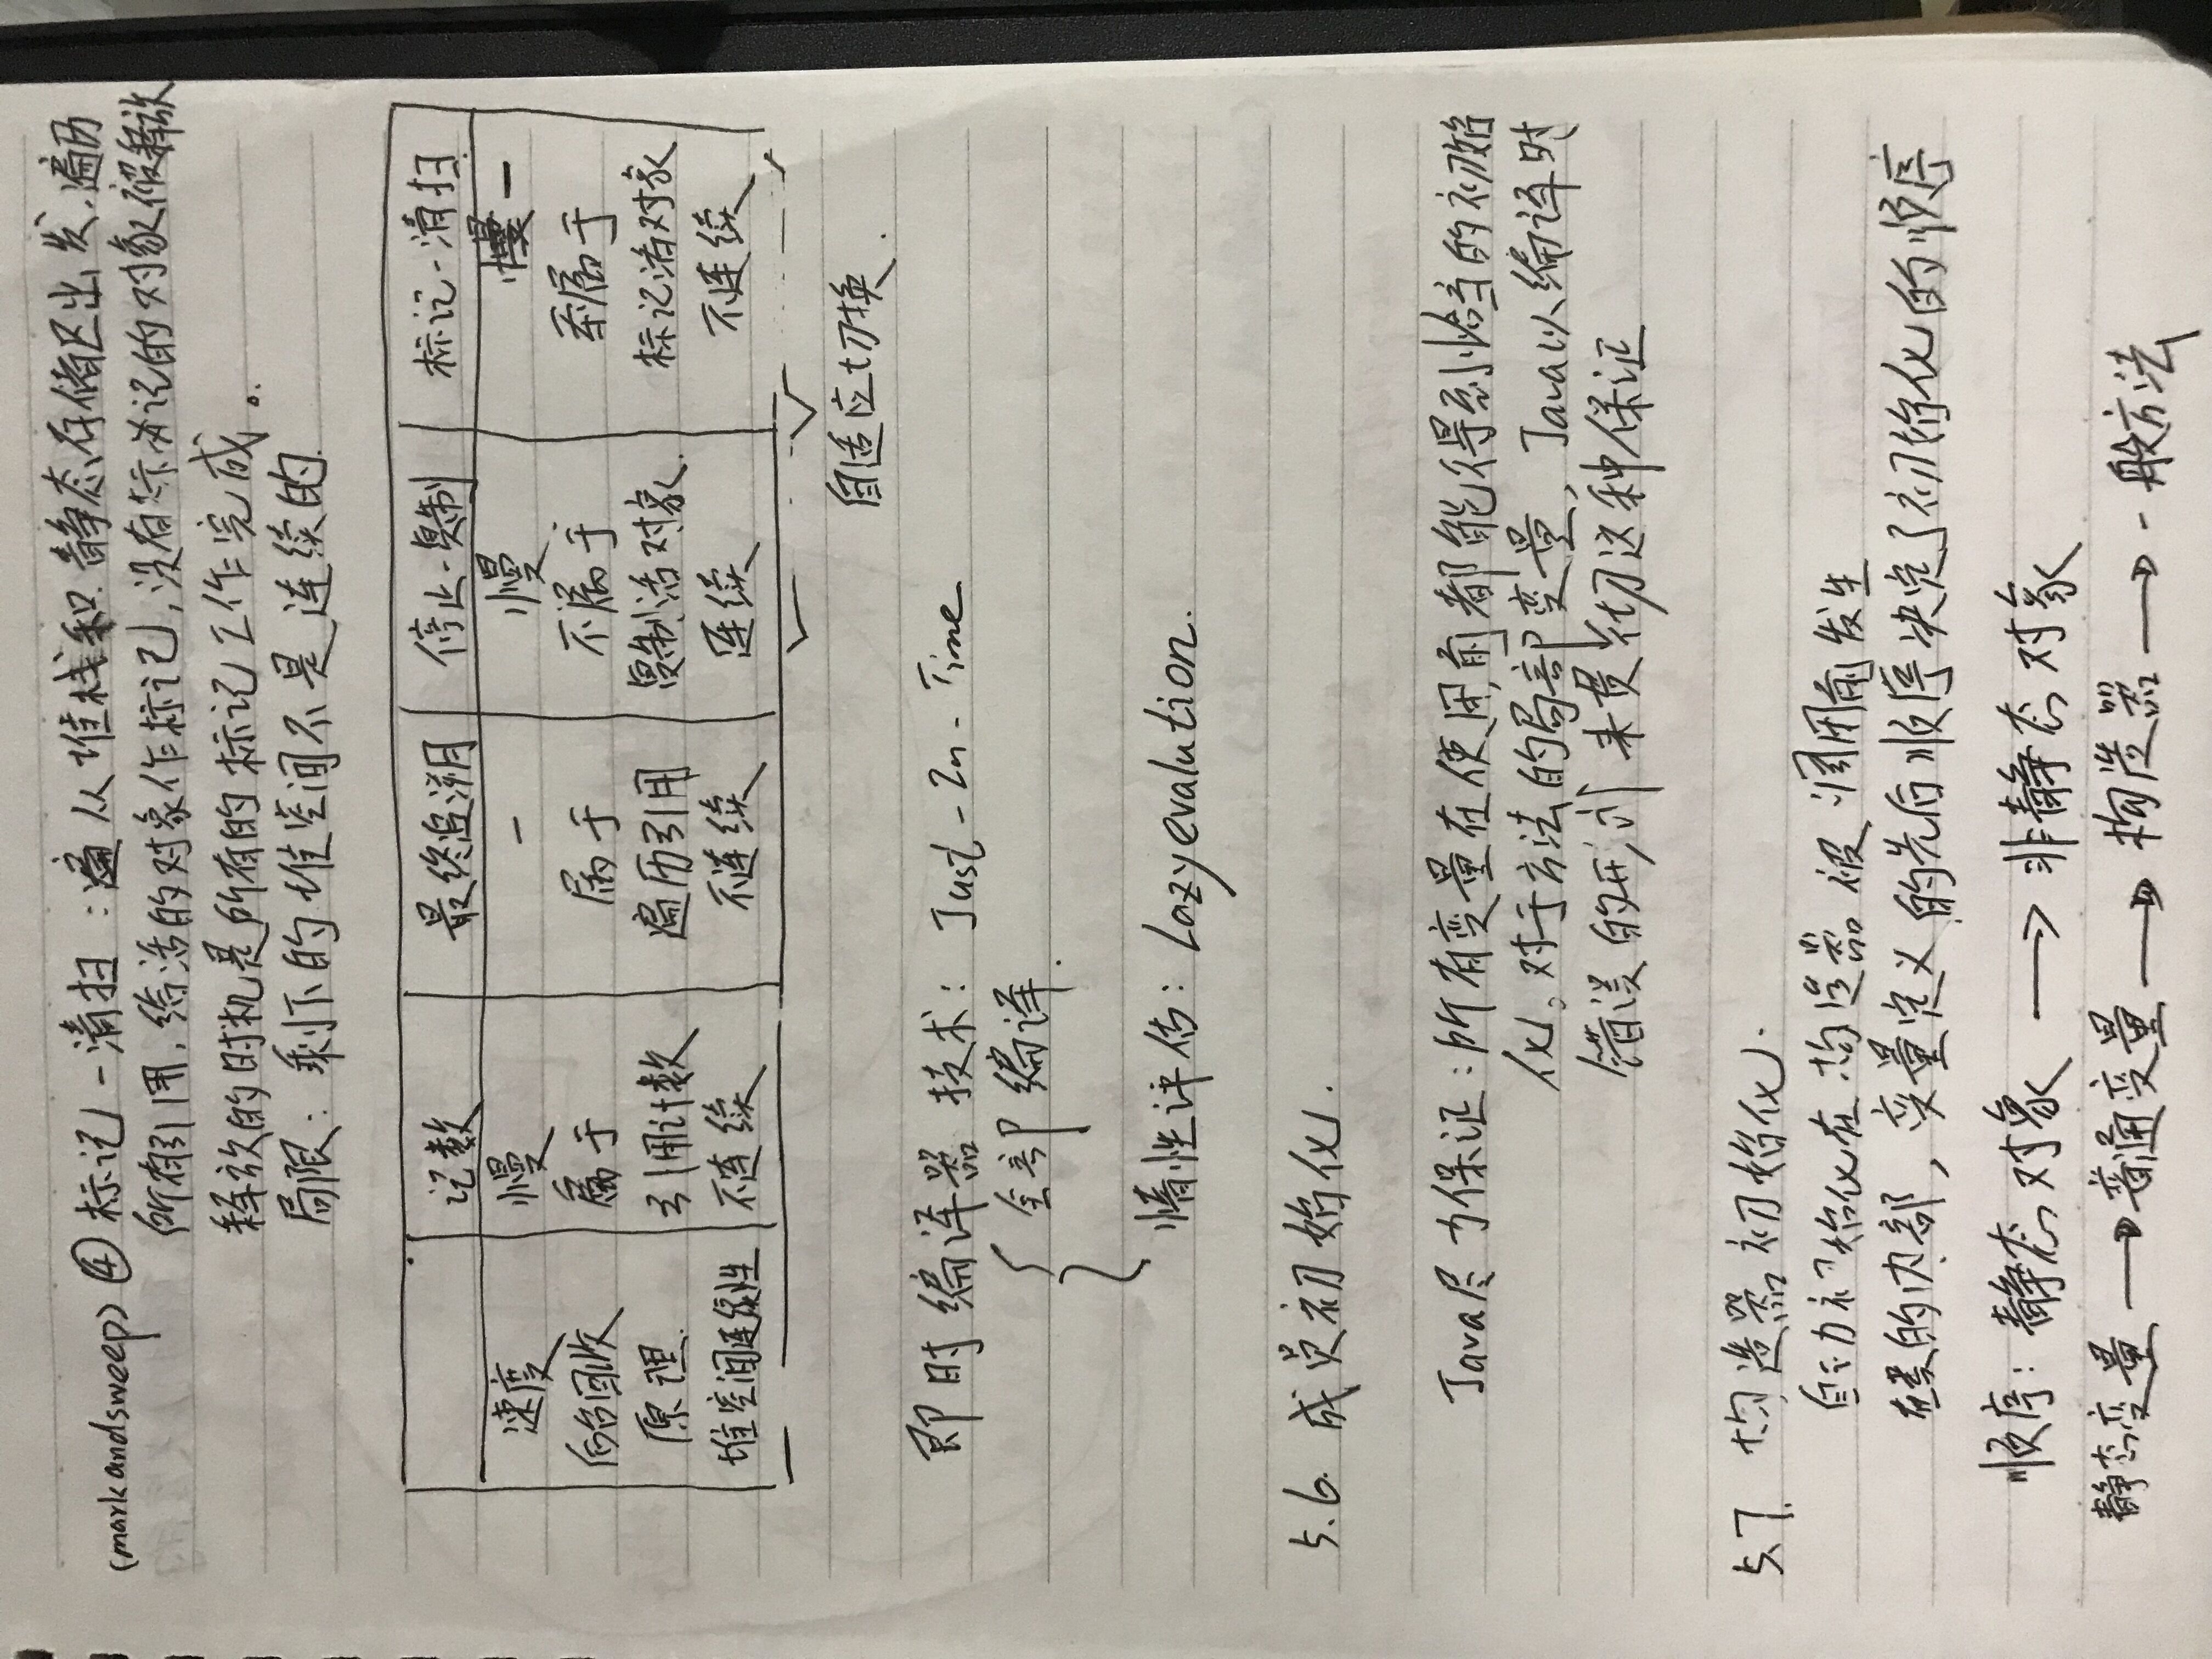 (mark and sweep) ④ 标记-清扫：从堆栈和静态存储区出发.遍历
所有引用，给活的对象作标记，没有标记的对象被释放
释放的时机是所有的标记工作完成。
局限：剩下的堆空间不是连续的.
记数 最终追溯 停止-复制 标记-清扫
速度 慢 - 慢 -
后台回收 属于 属于 不属于 属于
原理. 引用计数 遍历引用 复制活对象. 标记活对象
堆空间连续性 不连续 不连续 连续 不连续
自适应切换.
即时编译器技术：Just-In-Time
全部编译.
惰性评估：Lazy evalution.
5.6. 成员初始化.
Java尽力保证：所有变量在使用前都能得到恰当的初始
化。对于方法的局部变量，Java以编译时
错误的形式来贯彻这种保证
5.7. 构造器初始化.
自动初始化在构造器被调用前发生
在类的内部，变量定义的先后顺序决定了初始化的顺序
顺序：静态对象 → 非静态对象
静态变量 → 普通变量 → 构造器 → 一般方法